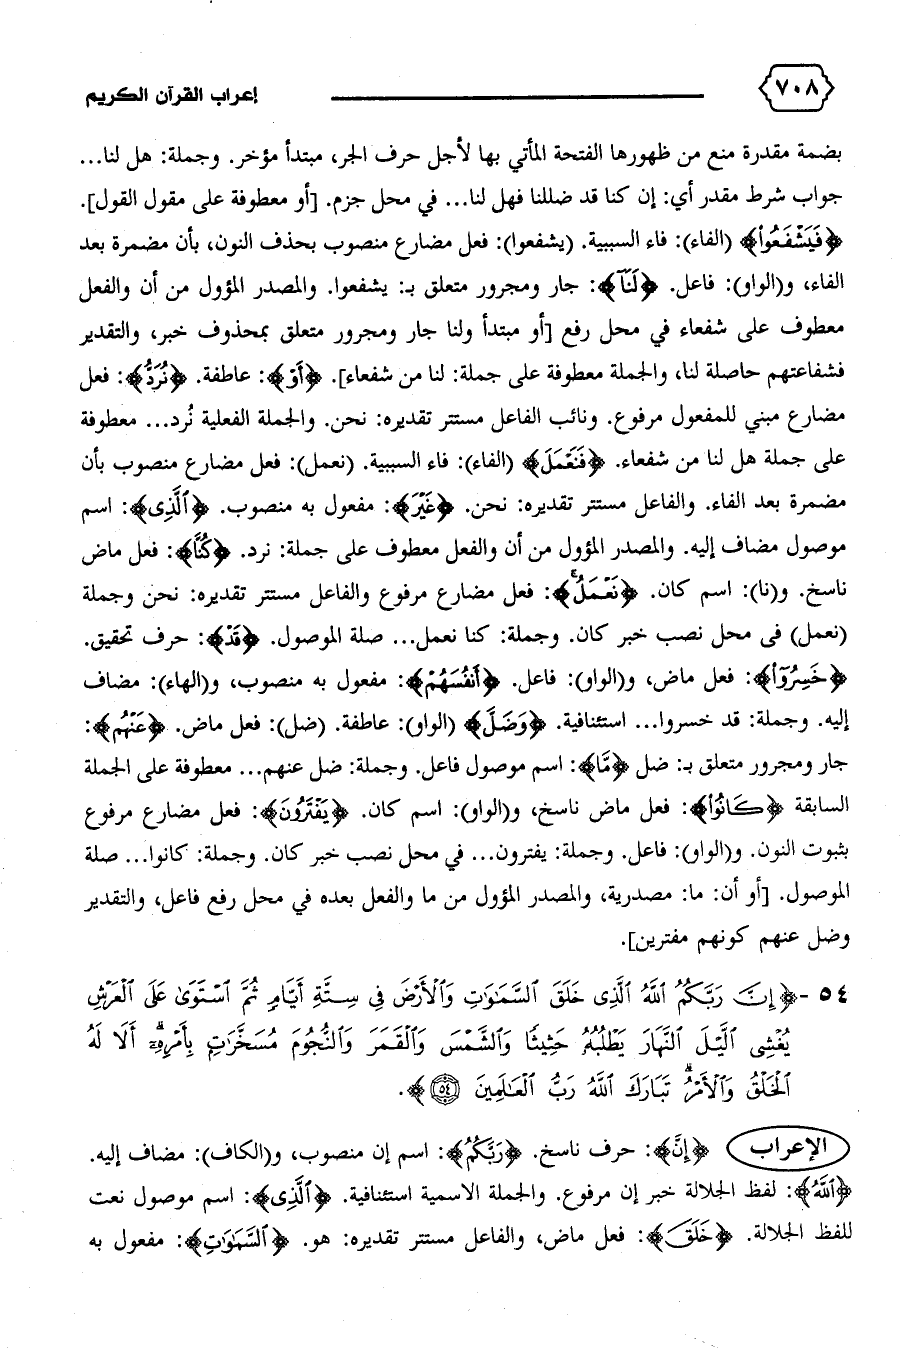 ٧٠٨ إعراب القرآن الكريم
بضمة مقدرة منع من ظهورها الفتحة المأتي بها لأجل حرف الجر، مبتدأ مؤخر. وجملة: هل لنا...
جواب شرط مقدر أي: إن كنا قد ضللنا فهل لنا... في محل جزم. [أو معطوفة على مقول القول].
﴿فَيَشْفَعُوا۟﴾ (الفاء): فاء السببية. (يشفعوا): فعل مضارع منصوب بحذف النون، بأن مضمرة بعد
الفاء، و(الواو): فاعل. ﴿لَنَآ﴾: جار ومجرور متعلق بـ: يشفعوا. والمصدر المؤول من أن والفعل
معطوف على شفعاء في محل رفع [أو مبتدأ ولنا جار ومجرور متعلق بمحذوف خبر، والتقدير
فشفاعتهم حاصلة لنا، والجملة معطوفة على جملة: لنا من شفعاء]. ﴿أَوْ﴾: عاطفة. ﴿نُرَدُّ﴾: فعل
مضارع مبني للمفعول مرفوع. ونائب الفاعل مستتر تقديره: نحن. والجملة الفعلية نُرد... معطوفة
على جملة هل لنا من شفعاء. ﴿فَنَعْمَلَ﴾ (الفاء): فاء السببية. (نعمل): فعل مضارع منصوب بأن
مضمرة بعد الفاء. والفاعل مستتر تقديره: نحن. ﴿غَيْرَ﴾: مفعول به منصوب. ﴿ٱلَّذِى﴾: اسم
موصول مضاف إليه. والمصدر المؤول من أن والفعل معطوف على جملة: نرد. ﴿كُنَّا﴾: فعل ماض
ناسخ. و(نا): اسم كان. ﴿نَعْمَلُ ۚ﴾: فعل مضارع مرفوع والفاعل مستتر تقديره: نحن وجملة
(نعمل) في محل نصب خبر كان. وجملة: كنا نعمل... صلة الموصول. ﴿قَدْ﴾: حرف تحقيق.
﴿خَسِرُوٓا۟﴾: فعل ماض، و(الواو): فاعل. ﴿أَنفُسَهُمْ﴾: مفعول به منصوب، و(الهاء): مضاف
إليه. وجملة: قد خسروا... استئنافية. ﴿وَضَلَّ﴾ (الواو): عاطفة. (ضل): فعل ماض. ﴿عَنْهُم﴾:
جار ومجرور متعلق بـ: ضل ﴿مَّا﴾: اسم موصول فاعل. وجملة: ضل عنهم... معطوفة على الجملة
السابقة ﴿كَانُوا۟﴾: فعل ماض ناسخ، و(الواو): اسم كان. ﴿يَفْتَرُونَ﴾: فعل مضارع مرفوع
بثبوت النون. و(الواو): فاعل. وجملة: يفترون... في محل نصب خبر كان. وجملة: كانوا... صلة
الموصول. [أو أن: ما: مصدرية، والمصدر المؤول من ما والفعل بعده في محل رفع فاعل، والتقدير
وضل عنهم كونهم مفترين].
٥٤ -﴿إِنَّ رَبَّكُمُ ٱللَّهُ ٱلَّذِى خَلَقَ ٱلسَّمَـٰوَٰتِ وَٱلْأَرْضَ فِى سِتَّةِ أَيَّامٍ ثُمَّ ٱسْتَوَىٰ عَلَى ٱلْعَرْشِ
يُغْشِى ٱلَّيْلَ ٱلنَّهَارَ يَطْلُبُهُۥ حَثِيثًا وَٱلشَّمْسَ وَٱلْقَمَرَ وَٱلنُّجُومَ مُسَخَّرَٰتٍۭ بِأَمْرِهِۦٓ ۗ أَلَا لَهُ
ٱلْخَلْقُ وَٱلْأَمْرُ ۗ تَبَارَكَ ٱللَّهُ رَبُّ ٱلْعَـٰلَمِينَ ٥٤﴾.
الإعراب ﴿إِنَّ﴾: حرف ناسخ. ﴿رَبَّكُمُ﴾: اسم إن منصوب، و(الكاف): مضاف إليه.
﴿ٱللَّهُ﴾: لفظ الجلالة خبر إن مرفوع. والجملة الاسمية استئنافية. ﴿ٱلَّذِى﴾: اسم موصول نعت
للفظ الجلالة. ﴿خَلَقَ﴾: فعل ماض، والفاعل مستتر تقديره: هو. ﴿ٱلسَّمَـٰوَٰتِ﴾: مفعول به